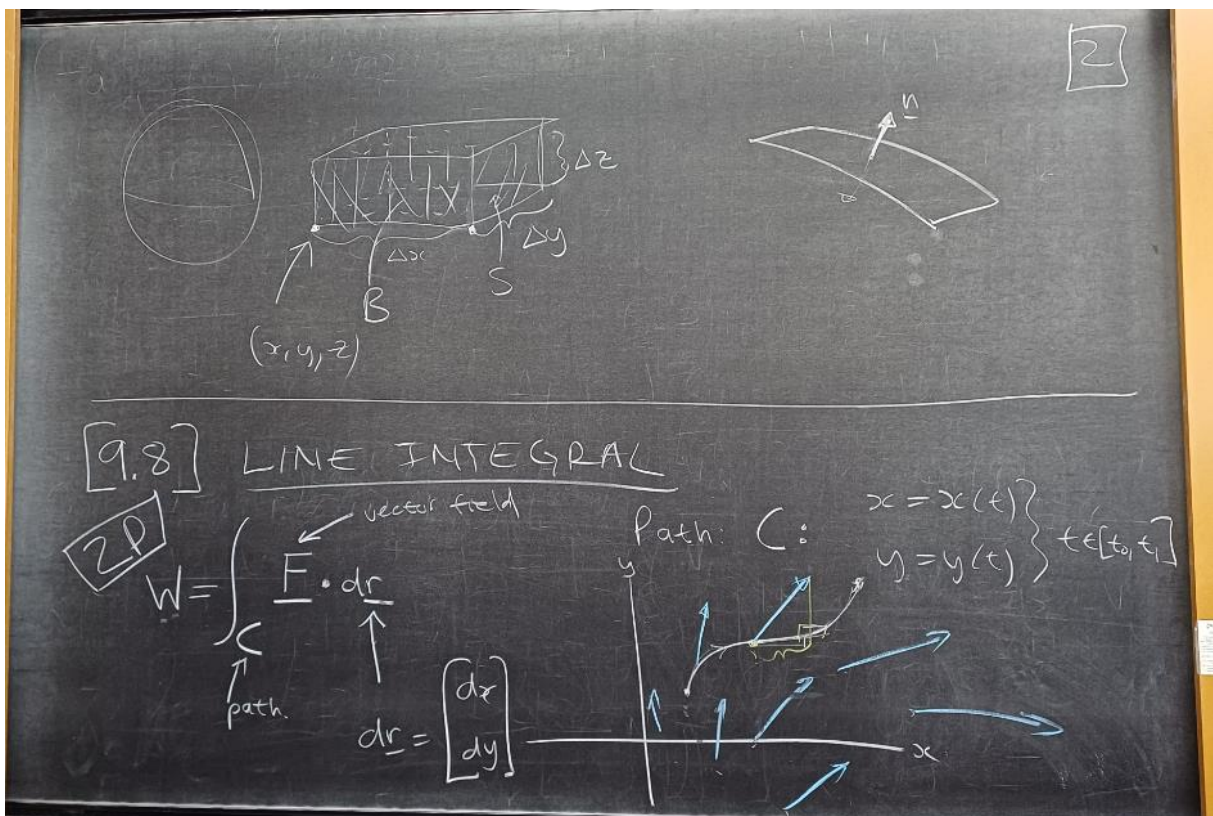 2
n
Δz
Δy
Δx
S
B
(x, y, z)
[9.8] LINE INTEGRAL
vector field
2P
W = ∫ F · dr
C
path.
dr = [dx
dy]
Path: C:
x = x(t)
y = y(t) } t ∈ [t₀, t₁]
y
x